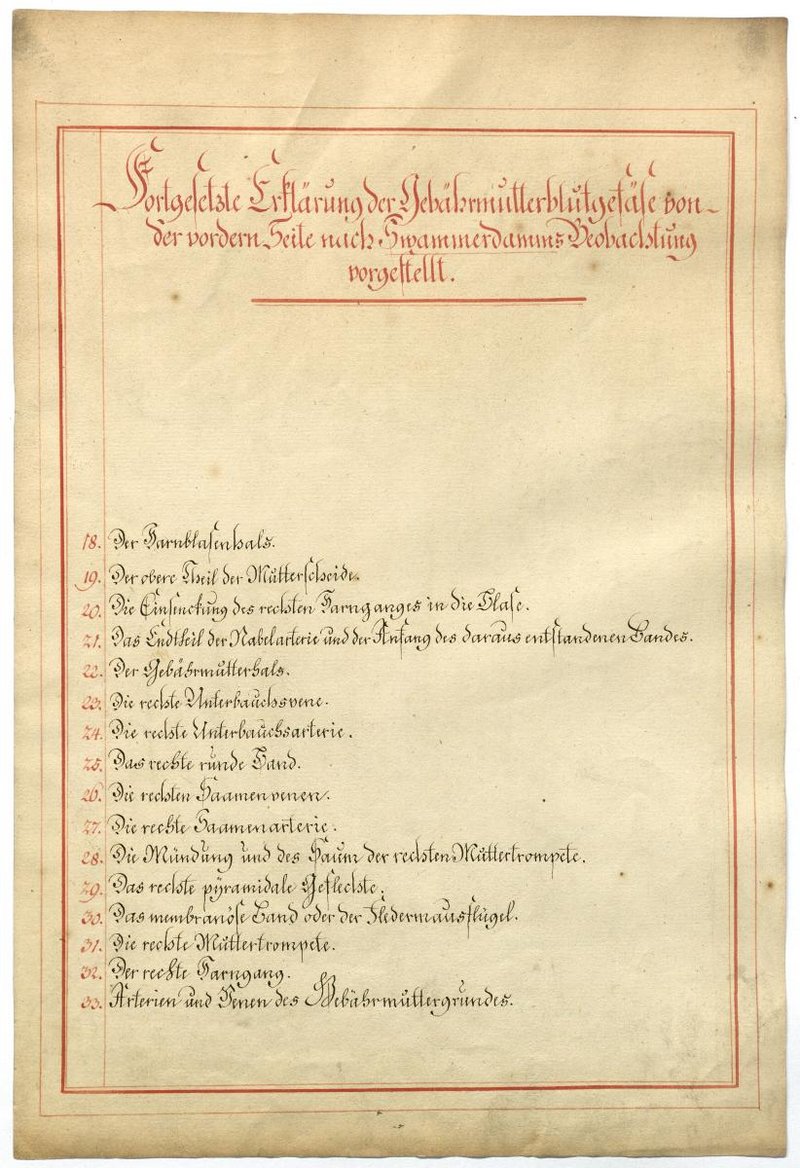 Fortgesetzte Erklärung der Gebährmutterblutgefäse von
der vordern Seite nach Swammerdamms Beobachtung
vorgestellt.
18. Der Harnblasenhals.
19. Der obere Theil der Mutterscheide.
20. Die Einsenckung des rechten Harnganges in die Blase.
21. Das Endtheil der Nabelarterie und der Anfang des daraus entstandenen Bandes.
22. Der Gebährmutterhals.
23. Die rechte Unterbauchsvene.
24. Die rechte Unterbauchsarterie.
25. Das rechte runde Band.
26. Die rechten Saamenvenen.
27. Die rechte Saamenarterie.
28. Die Mündung und des Saum der rechten Muttertrompete.
29. Das rechte pyramidale Geflechte.
30. Das membranöse Band oder der Fledermausflügel.
31. Die rechte Muttertrompete.
32. Der rechte Harngang.
33. Arterien und Venen des Gebährmuttergrundes.